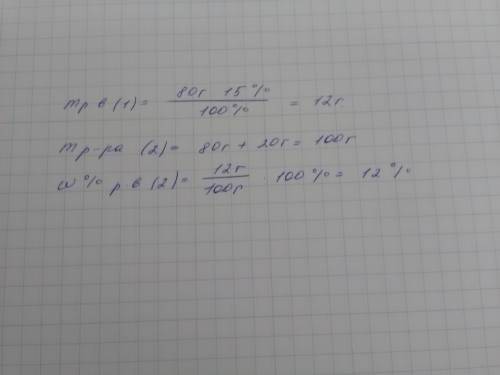 mр в (1) = 80г 15% / 100% = 12г
mр-ра (2) = 80г + 20г = 100г
w% р в (2) = 12г / 100г · 100% = 12%